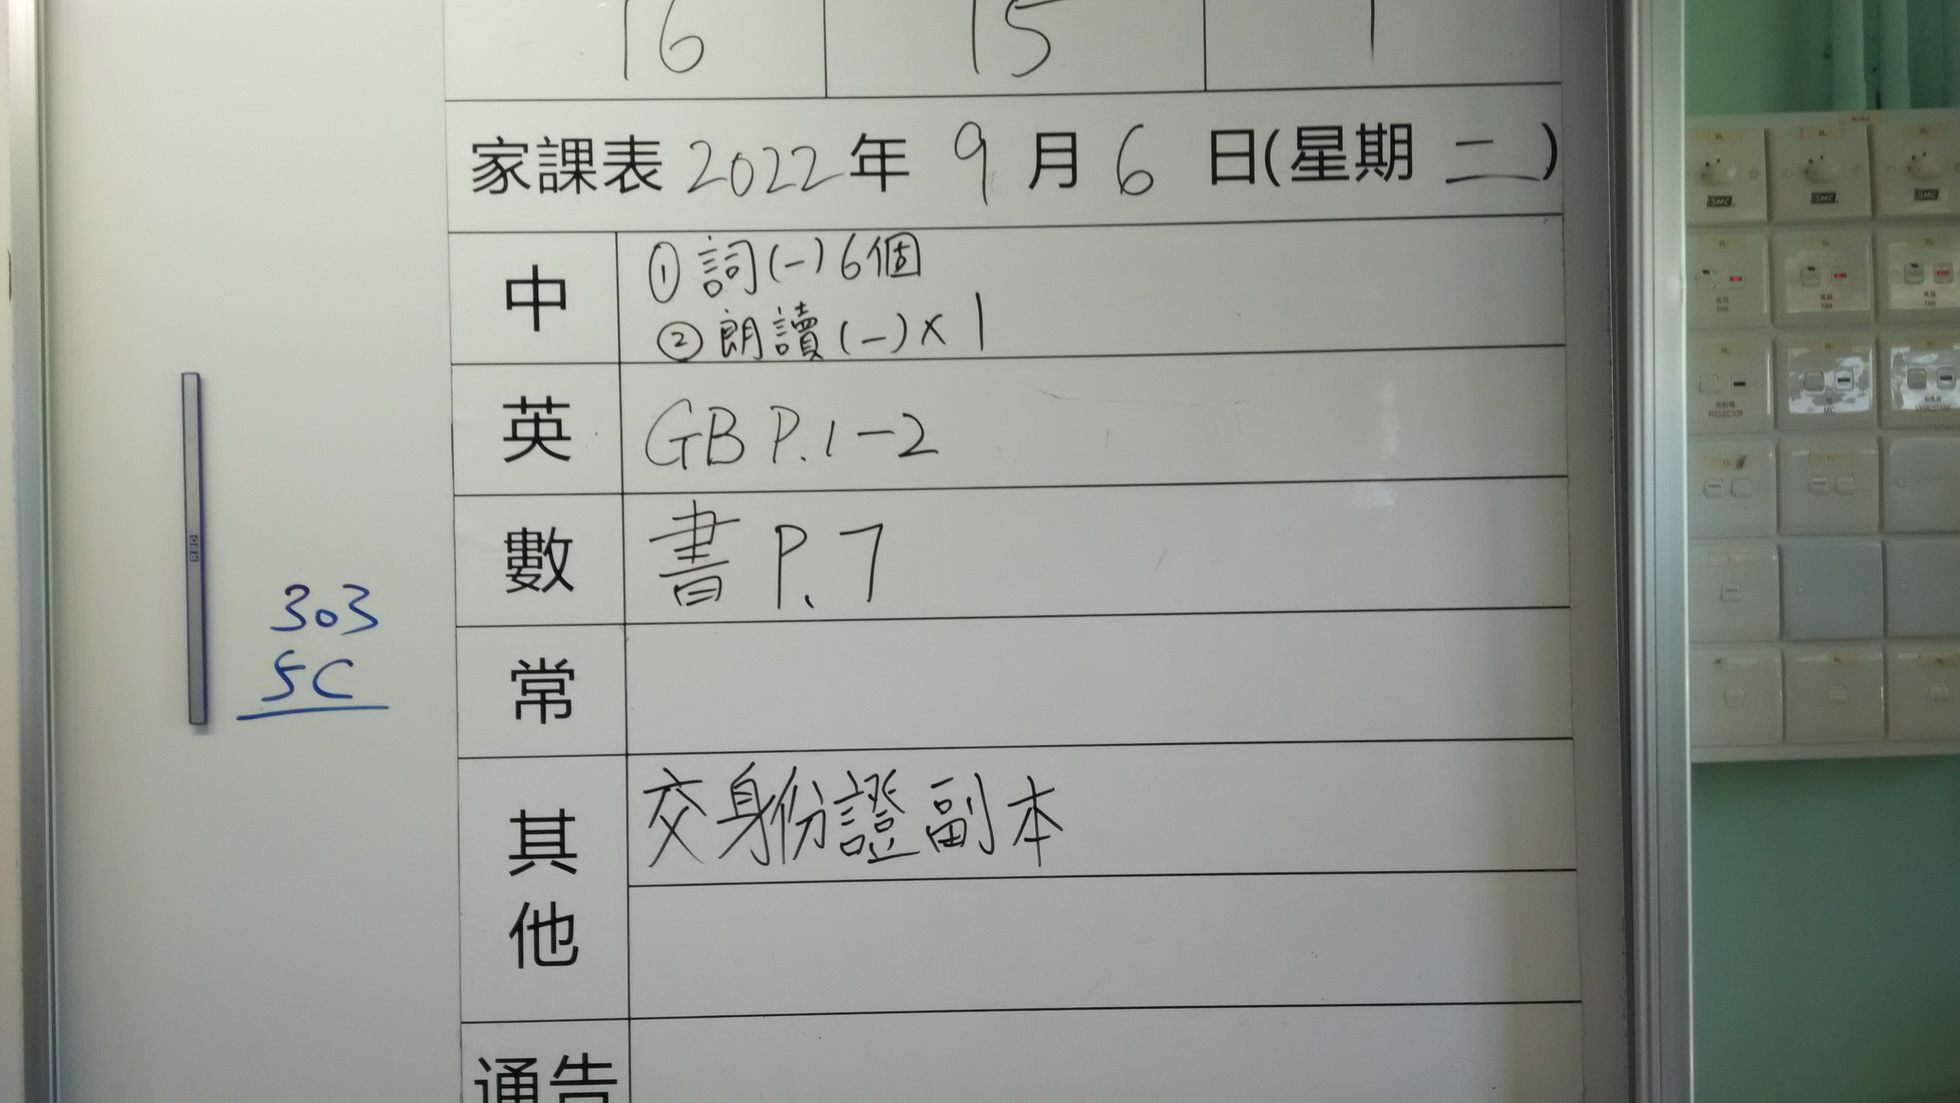 16 15 1
家課表 2022年 9月6日(星期二)
中 ①詞(一)6個
②朗讀(一)×1
英 GB P.1-2
數 書 P.7
常
其他 交身份證副本
通告
303
5C